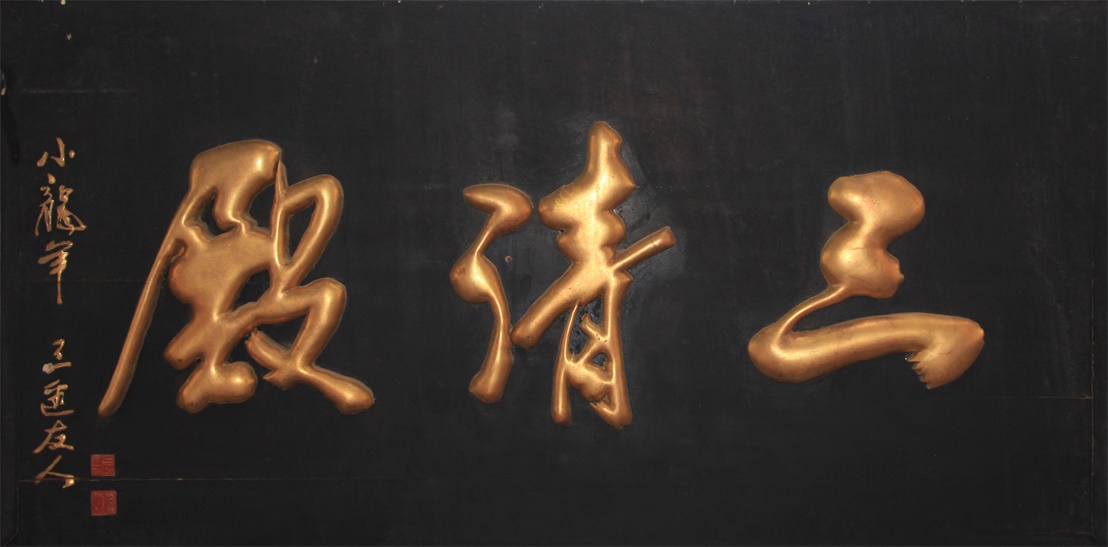 三清殿
小龍年 三運友人